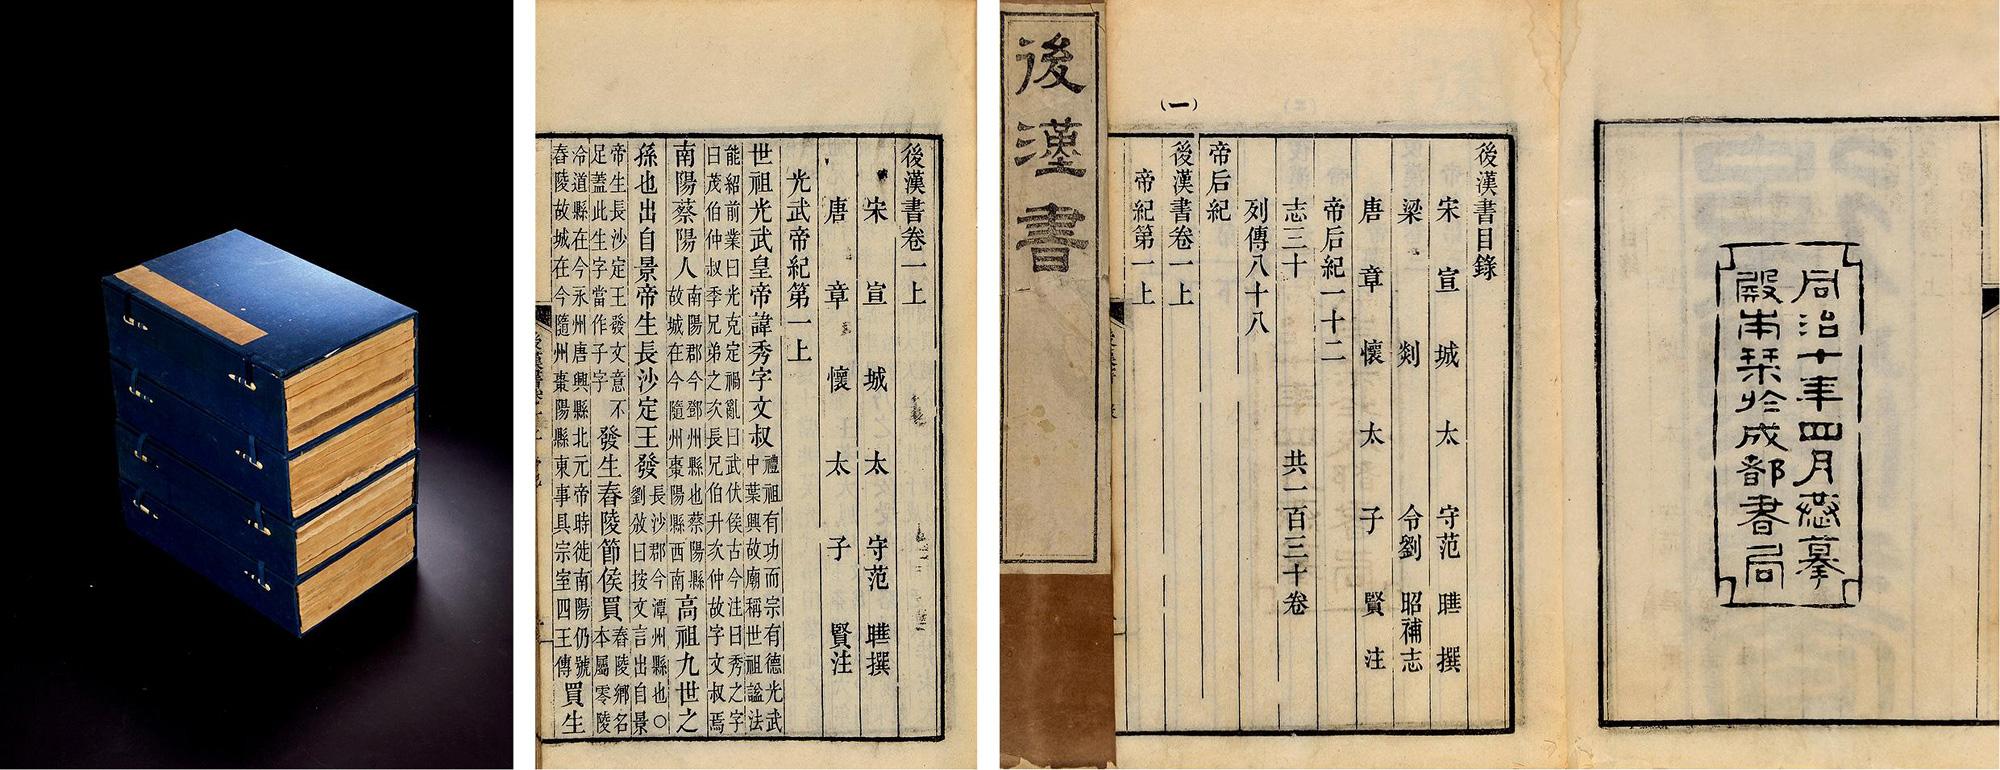 後漢書卷一上
宋宣城太守范曄撰
唐章懷太子賢注
光武帝紀第一上
世祖光武皇帝諱秀字文叔禮祖有功而宗有德光武中葉興故廟稱世祖諡法
能紹前業曰光克定禍亂曰武伏侯古今注曰秀之字曰茂伯仲叔季兄弟之次長兄伯升次仲故字文叔焉
南陽蔡陽人南陽郡今鄧州縣也蔡陽縣故城在今隨州棗陽縣西南高祖九世之
孫也出自景帝生長沙定王發長沙郡今潭州縣也〇劉攽曰按文言出自景
帝生長沙定王發文意不足蓋此生字當作子字發生舂陵節侯買舂陵鄉名本屬零陵
泠道縣在今永州唐興縣北元帝時徙南陽仍號舂陵故城在今隨州棗陽縣東事具宗室四王傳買生
後漢書
後漢書目錄
宋宣城太守范曄撰
梁剡令劉昭補志
唐章懷太子賢注
帝后紀一十二
志三十 共一百三十卷
列傳八十八
帝后紀
後漢書卷一上
帝紀第一上
(一)
同治十年四月恭摹
殿本栞於成都書局